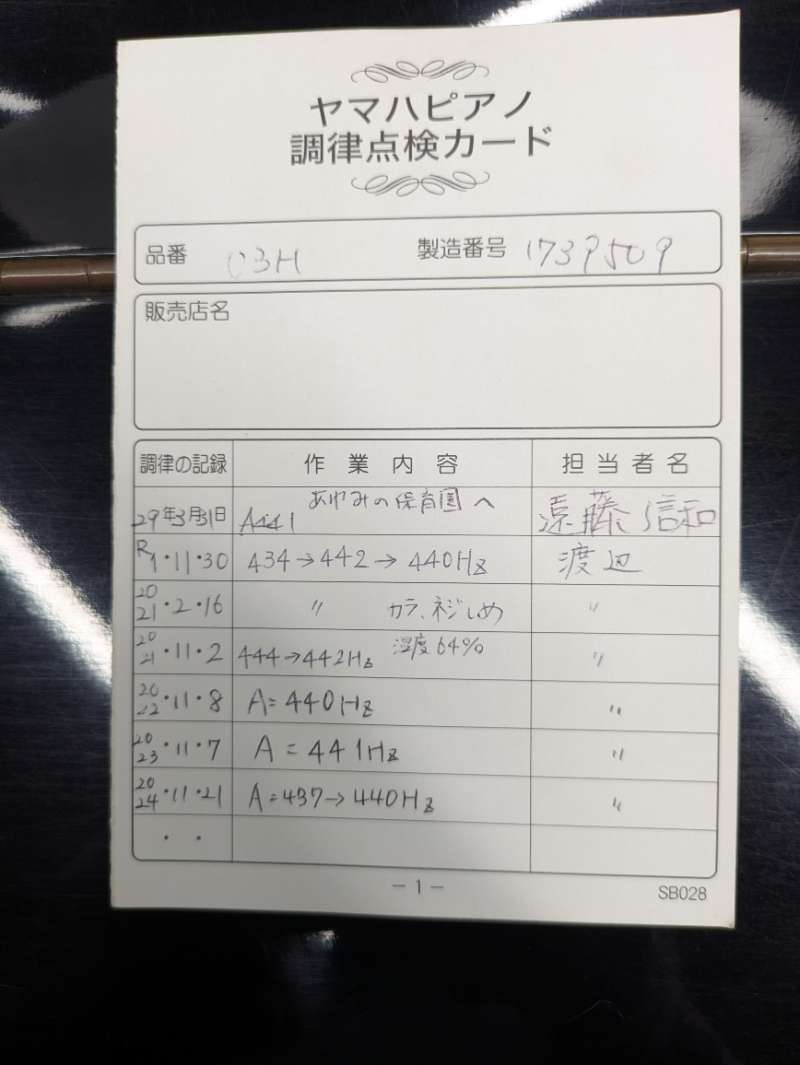 ヤマハピアノ
調律点検カード
品番 C3H 製造番号 1739509
販売店名
調律の記録 作業内容 担当者名
29年3月31日 A441 あゆみの保育園へ 遠藤信和
R1・11・30 434→442→440Hz 渡辺
2021・2・16 〃 カラ、ネジしめ 〃
2021・11・2 444→442Hz 湿度64% 〃
2022・11・8 A=440Hz 〃
2023・11・7 A=441Hz 〃
2024・11・21 A=437→440Hz 〃
・ ・
－1－
SB028